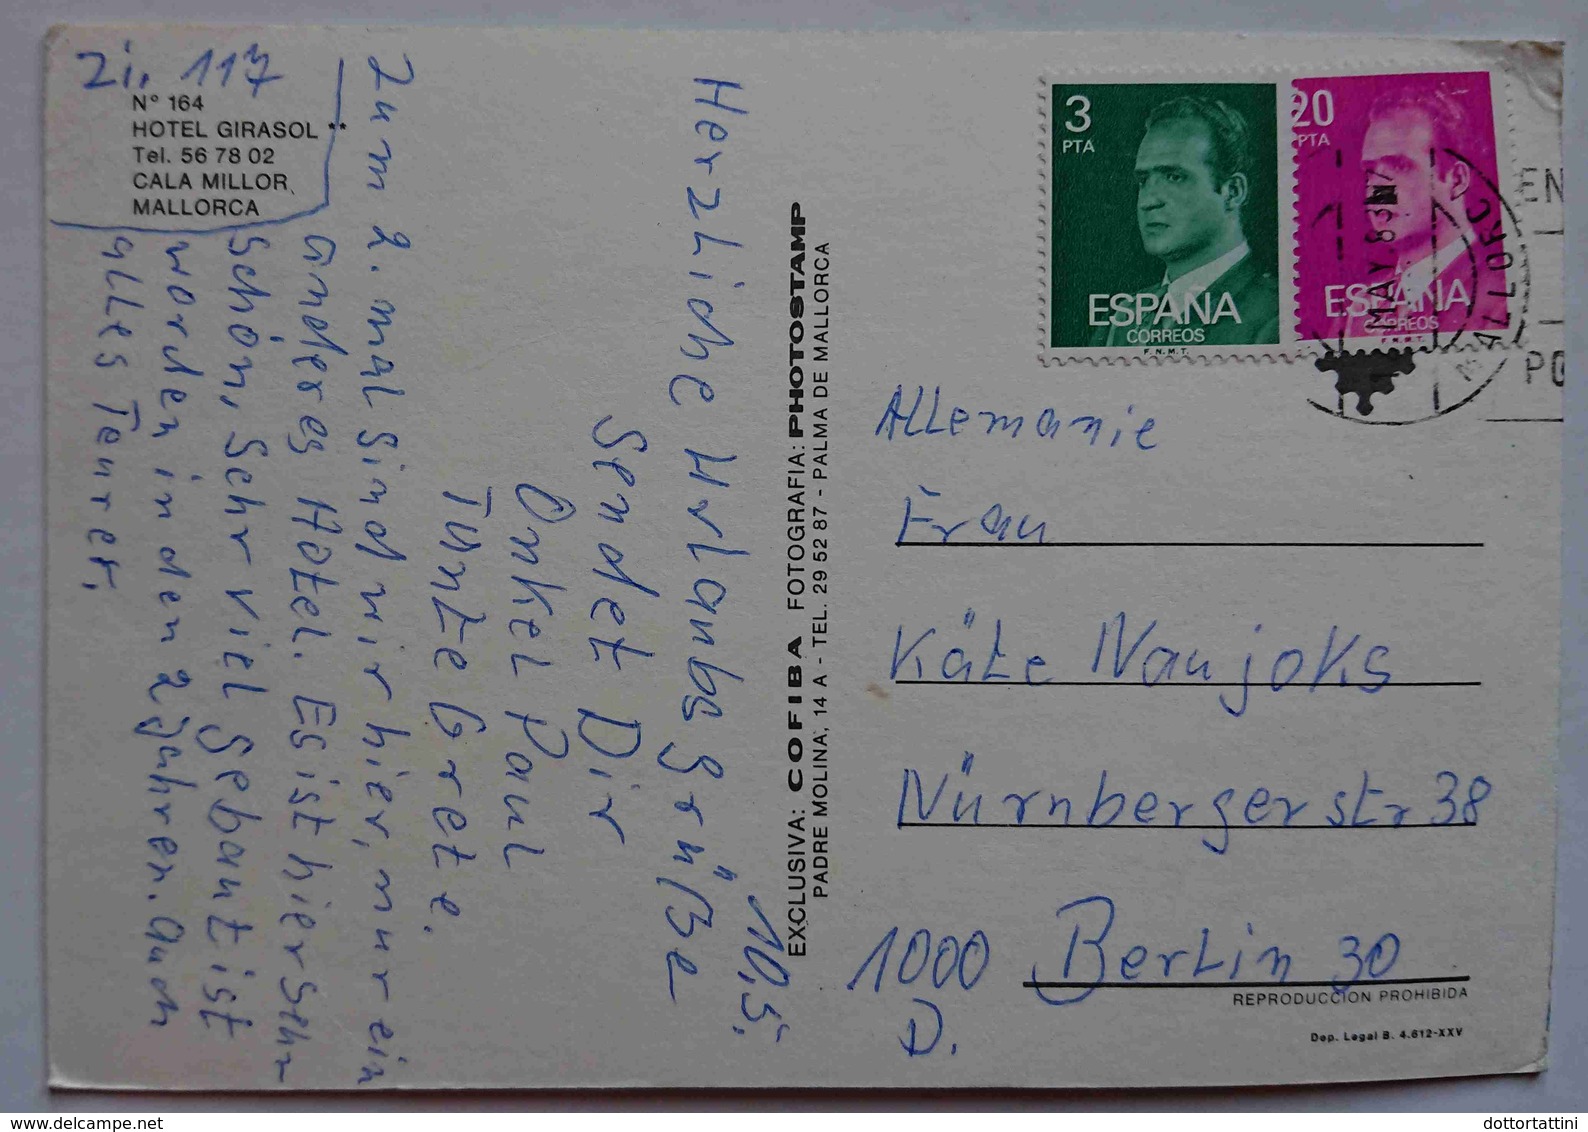 Zi. 117
N° 164
HOTEL GIRASOL **
Tel. 56 78 02
CALA MILLOR
MALLORCA
10.5.
Herzliche Urlaubsgrüße
Sendet Dir
Onkel Paul
Tante Grete.
Zum 2. mal sind wir hier, nur ein
anderes Hotel. Es ist hier Sehr
Schön, Sehr viel gebaut ist
worden in den 2 Jahren. Auch
alles Teurer.
EXCLUSIVA: COFIBA FOTOGRAFIA: PHOTOSTAMP
PADRE MOLINA, 14 A - TEL. 29 52 87 - PALMA DE MALLORCA
3
PTA
ESPAÑA
CORREOS
F.N.M.T.
20
PTA
ESPAÑA
CORREOS
F.N.M.T.
MAY 83
MALLORC
EN
PO
Allemanie
Frau
Käte Naujoks
Nürnbergerstr 38
1000 Berlin 30
D.
REPRODUCCION PROHIBIDA
Dep. Legal B. 4.612-XXV
www.delcampe.net
dottortattini